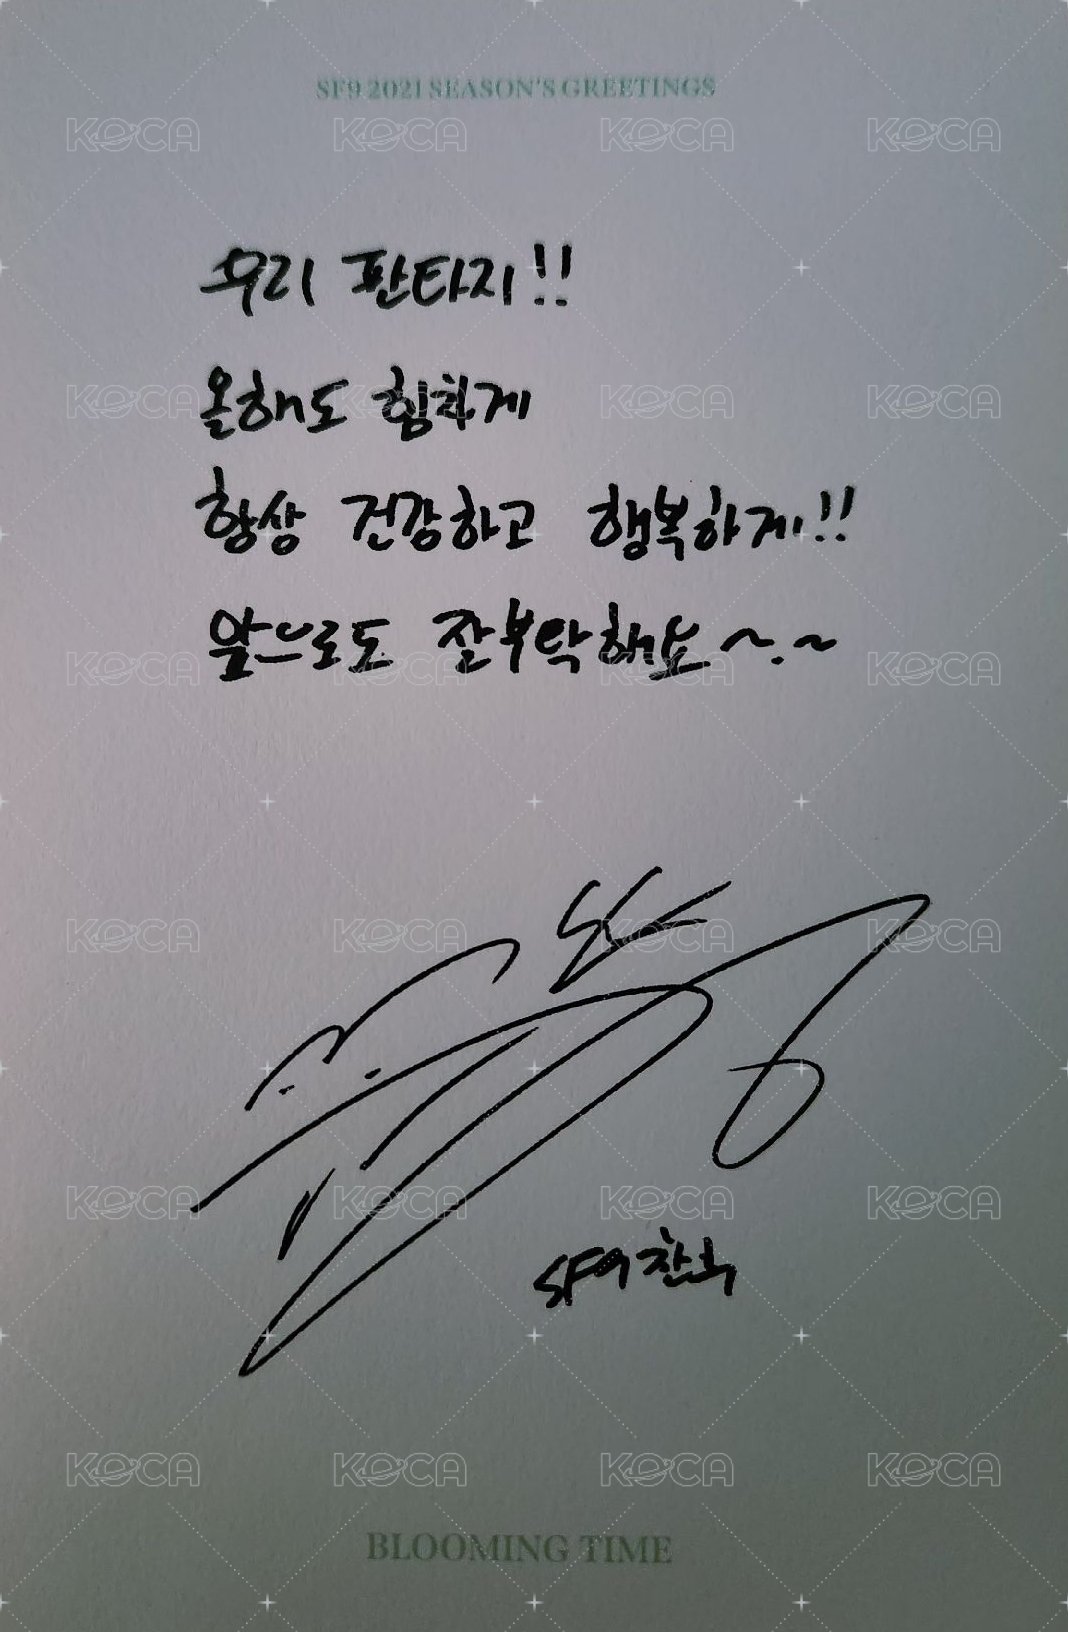 SF9 2021 SEASON'S GREETINGS
KOCA KOCA KOCA KOCA
우리 판타지!!
올해도 힘차게
KOCA KOCA KOCA KOCA
항상 건강하고 행복하게!!
앞으로도 잘부탁해요~.~
KOCA KOCA KOCA KOCA
KOCA KOCA KOCA KOCA
KOCA KOCA KOCA KOCA
SF9 찬희
KOCA KOCA KOCA KOCA
BLOOMING TIME